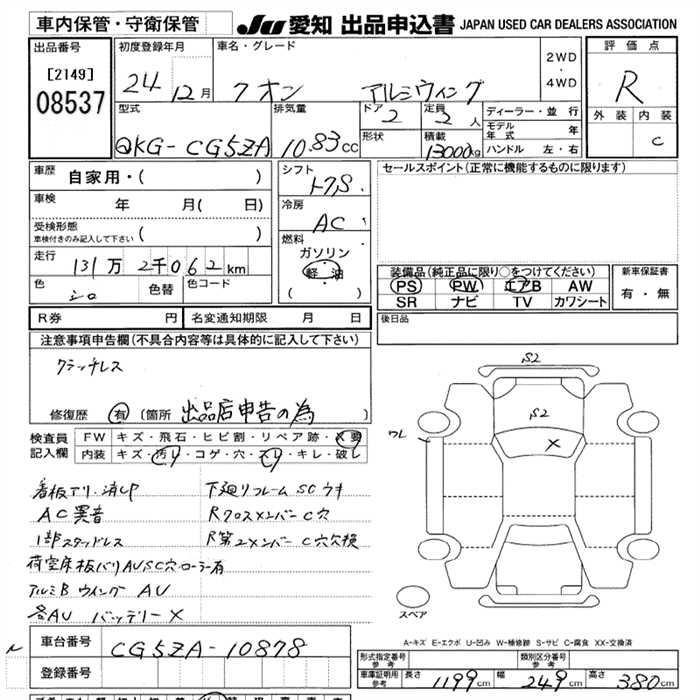 車内保管・守衛保管
JU 愛知 出品申込書 JAPAN USED CAR DEALERS ASSOCIATION
出品番号 [2149] 08537
初度登録年月 24 12月
車名・グレード クオン アルミウィング
2WD・4WD
評価点 R
外装 内装 C
型式 QKG-CG5ZA
排気量 10.83cc
ドア 2
形状
定員 2人
積載 13000kg
ディーラー・並行
モデル年式 年
ハンドル 左・右
車歴 自家用・( )
車検 年 月( 日)
受検形態 車検付きのみ記入して下さい ( )
走行 131万2千062km
色 シロ 色替 色コード
シフト
冷房 AC
燃料 ガソリン 軽油 ( )
セールスポイント(正常に機能するものに限ります)
装備品(純正品に限り○をつけてください)
PS PW エアB AW
SR ナビ TV カワシート
新車保証書 有・無
R券 円 名変通知期限 月 日
後日品
注意事項申告欄(不具合内容等は具体的に記入して下さい)
クラッチレス
修復歴 有 (箇所 出品店申告の為
検査員記入欄
FW キズ・飛石・ヒビ割・リペア跡・X要
内装 キズ・汚れ・コゲ・穴・スレ・キレ・破レ
看板アリ・消し下廻りフレームSCウキ
AC異音 RクロスメンバーC穴
1部スタッドレス R第2メンバーC穴欠損
荷室床板バリAUSC穴ローラー有
アルミB ウイングAU
各AU バッテリーX
S2
S2
X
ワレ
スペア
A-キズ E-エクボ U-凹み W-補修跡 S-サビ C-腐食 XX-交換済
車台番号 CG5ZA-10878
登録番号
形式指定番号 参考
類別区分番号 参考
車庫証明用 参考 長さ 1199cm 幅 249cm 高さ 380cm